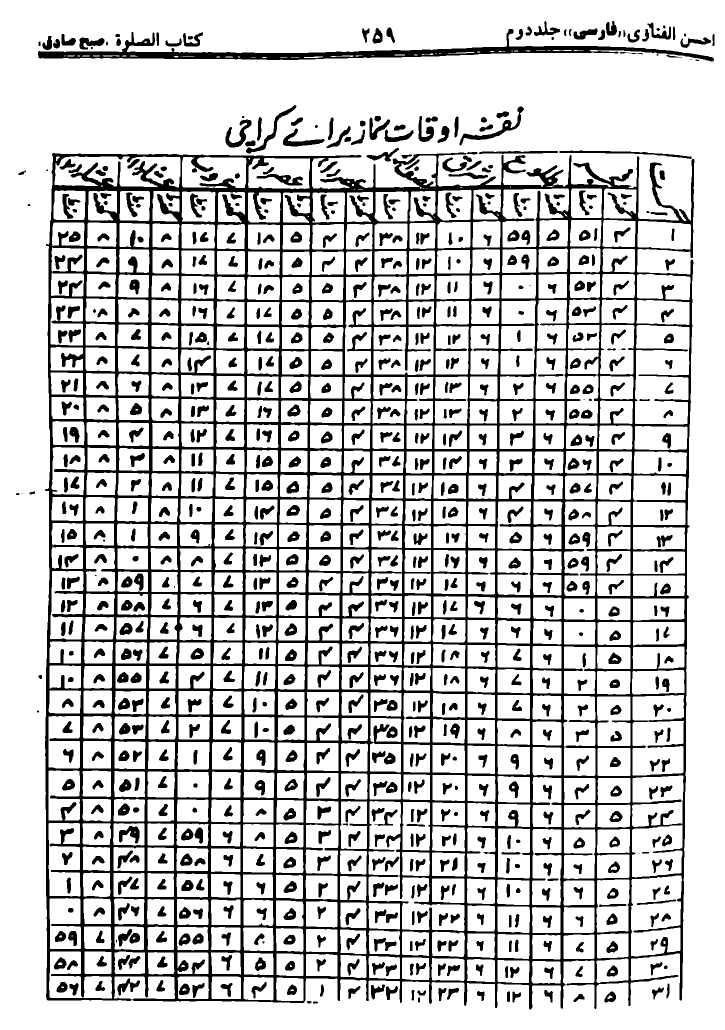 احسن الفتاوی «فارسی» جلد دوم ۲۵۹ کتاب الصلوة، صبح صادق،
نقشہ اوقات نماز برائے کراچی
اگست طلوع اشراق غروب
گھنٹہ منٹ گھنٹہ منٹ گھنٹہ منٹ گھنٹہ منٹ گھنٹہ منٹ گھنٹہ منٹ گھنٹہ منٹ گھنٹہ منٹ گھنٹہ منٹ
۱ ۴ ۵۱ ۵ ۵۹ ۶ ۱۰ ۱۲ ۳۸ ۴ ۴ ۵ ۱۸ ۷ ۱۷ ۸ ۱۰ ۸ ۲۵
۲ ۴ ۵۱ ۵ ۵۹ ۶ ۱۰ ۱۲ ۳۸ ۴ ۴ ۵ ۱۸ ۷ ۱۷ ۸ ۹ ۸ ۲۴
۳ ۴ ۵۲ ۶ ۰ ۶ ۱۱ ۱۲ ۳۸ ۴ ۵ ۵ ۱۸ ۷ ۱۶ ۸ ۹ ۸ ۲۴
۴ ۴ ۵۳ ۶ ۰ ۶ ۱۱ ۱۲ ۳۸ ۴ ۵ ۵ ۱۷ ۷ ۱۶ ۸ ۸ ۸ ۲۳
۵ ۴ ۵۳ ۶ ۱ ۶ ۱۲ ۱۲ ۳۸ ۴ ۵ ۵ ۱۷ ۷ ۱۵ ۸ ۷ ۸ ۲۳
۶ ۴ ۵۴ ۶ ۱ ۶ ۱۲ ۱۲ ۳۸ ۴ ۵ ۵ ۱۷ ۷ ۱۴ ۸ ۷ ۸ ۲۲
۷ ۴ ۵۵ ۶ ۲ ۶ ۱۳ ۱۲ ۳۸ ۴ ۵ ۵ ۱۷ ۷ ۱۳ ۸ ۶ ۸ ۲۱
۸ ۴ ۵۵ ۶ ۲ ۶ ۱۳ ۱۲ ۳۸ ۴ ۵ ۵ ۱۶ ۷ ۱۳ ۸ ۵ ۸ ۲۰
۹ ۴ ۵۶ ۶ ۳ ۶ ۱۴ ۱۲ ۳۷ ۴ ۵ ۵ ۱۶ ۷ ۱۲ ۸ ۴ ۸ ۱۹
۱۰ ۴ ۵۶ ۶ ۳ ۶ ۱۴ ۱۲ ۳۷ ۴ ۵ ۵ ۱۵ ۷ ۱۱ ۸ ۳ ۸ ۱۸
۱۱ ۴ ۵۷ ۶ ۴ ۶ ۱۵ ۱۲ ۳۷ ۴ ۵ ۵ ۱۵ ۷ ۱۱ ۸ ۲ ۸ ۱۷
۱۲ ۴ ۵۸ ۶ ۴ ۶ ۱۵ ۱۲ ۳۷ ۴ ۵ ۵ ۱۴ ۷ ۱۰ ۸ ۱ ۸ ۱۶
۱۳ ۴ ۵۹ ۶ ۵ ۶ ۱۶ ۱۲ ۳۷ ۴ ۵ ۵ ۱۴ ۷ ۹ ۸ ۱ ۸ ۱۵
۱۴ ۴ ۵۹ ۶ ۵ ۶ ۱۶ ۱۲ ۳۷ ۴ ۵ ۵ ۱۳ ۷ ۸ ۸ ۰ ۸ ۱۴
۱۵ ۴ ۵۹ ۶ ۶ ۶ ۱۷ ۱۲ ۳۶ ۴ ۴ ۵ ۱۳ ۷ ۷ ۷ ۵۹ ۸ ۱۳
۱۶ ۵ ۰ ۶ ۶ ۶ ۱۷ ۱۲ ۳۶ ۴ ۴ ۵ ۱۳ ۷ ۶ ۷ ۵۸ ۸ ۱۲
۱۷ ۵ ۰ ۶ ۶ ۶ ۱۷ ۱۲ ۳۶ ۴ ۴ ۵ ۱۲ ۷ ۶ ۷ ۵۷ ۸ ۱۱
۱۸ ۵ ۱ ۶ ۷ ۶ ۱۸ ۱۲ ۳۶ ۴ ۴ ۵ ۱۱ ۷ ۵ ۷ ۵۶ ۸ ۱۰
۱۹ ۵ ۲ ۶ ۷ ۶ ۱۸ ۱۲ ۳۶ ۴ ۴ ۵ ۱۱ ۷ ۴ ۷ ۵۵ ۸ ۱۰
۲۰ ۵ ۲ ۶ ۷ ۶ ۱۸ ۱۲ ۳۵ ۴ ۴ ۵ ۱۰ ۷ ۳ ۷ ۵۳ ۸ ۸
۲۱ ۵ ۳ ۶ ۸ ۶ ۱۹ ۱۲ ۳۵ ۴ ۴ ۵ ۱۰ ۷ ۲ ۷ ۵۳ ۸ ۷
۲۲ ۵ ۴ ۶ ۹ ۶ ۲۰ ۱۲ ۳۵ ۴ ۴ ۵ ۹ ۷ ۱ ۷ ۵۲ ۸ ۶
۲۳ ۵ ۴ ۶ ۹ ۶ ۲۰ ۱۲ ۳۵ ۴ ۴ ۵ ۹ ۷ ۰ ۷ ۵۱ ۸ ۵
۲۴ ۵ ۴ ۶ ۹ ۶ ۲۰ ۱۲ ۳۴ ۴ ۳ ۵ ۸ ۷ ۰ ۷ ۵۰ ۸ ۴
۲۵ ۵ ۵ ۶ ۱۰ ۶ ۲۱ ۱۲ ۳۴ ۴ ۳ ۵ ۸ ۶ ۵۹ ۷ ۴۹ ۸ ۳
۲۶ ۵ ۶ ۶ ۱۰ ۶ ۲۱ ۱۲ ۳۴ ۴ ۳ ۵ ۷ ۶ ۵۸ ۷ ۴۸ ۸ ۲
۲۷ ۵ ۶ ۶ ۱۰ ۶ ۲۱ ۱۲ ۳۳ ۴ ۲ ۵ ۶ ۶ ۵۷ ۷ ۴۷ ۸ ۱
۲۸ ۵ ۶ ۶ ۱۱ ۶ ۲۲ ۱۲ ۳۳ ۴ ۲ ۵ ۶ ۶ ۵۶ ۷ ۴۶ ۸ ۰
۲۹ ۵ ۷ ۶ ۱۱ ۶ ۲۲ ۱۲ ۳۳ ۴ ۲ ۵ ۶ ۵۵ ۷ ۴۵ ۷ ۵۹
۳۰ ۵ ۷ ۶ ۱۲ ۶ ۲۳ ۱۲ ۳۳ ۴ ۲ ۵ ۵ ۶ ۵۴ ۷ ۴۴ ۷ ۵۸
۳۱ ۵ ۸ ۶ ۱۲ ۶ ۲۳ ۱۲ ۳۲ ۴ ۱ ۵ ۴ ۶ ۵۳ ۷ ۴۲ ۷ ۵۶